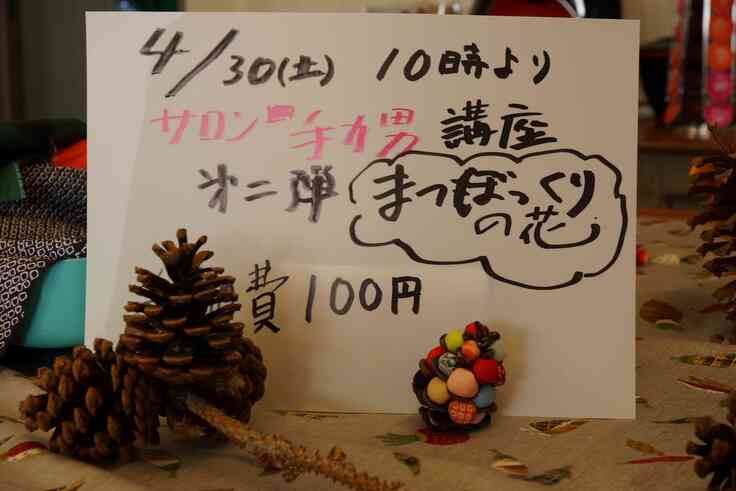 4/30(土) 10時より
サロン 手力男 講座
才二弾 まつぼっくり
の花
費 100円